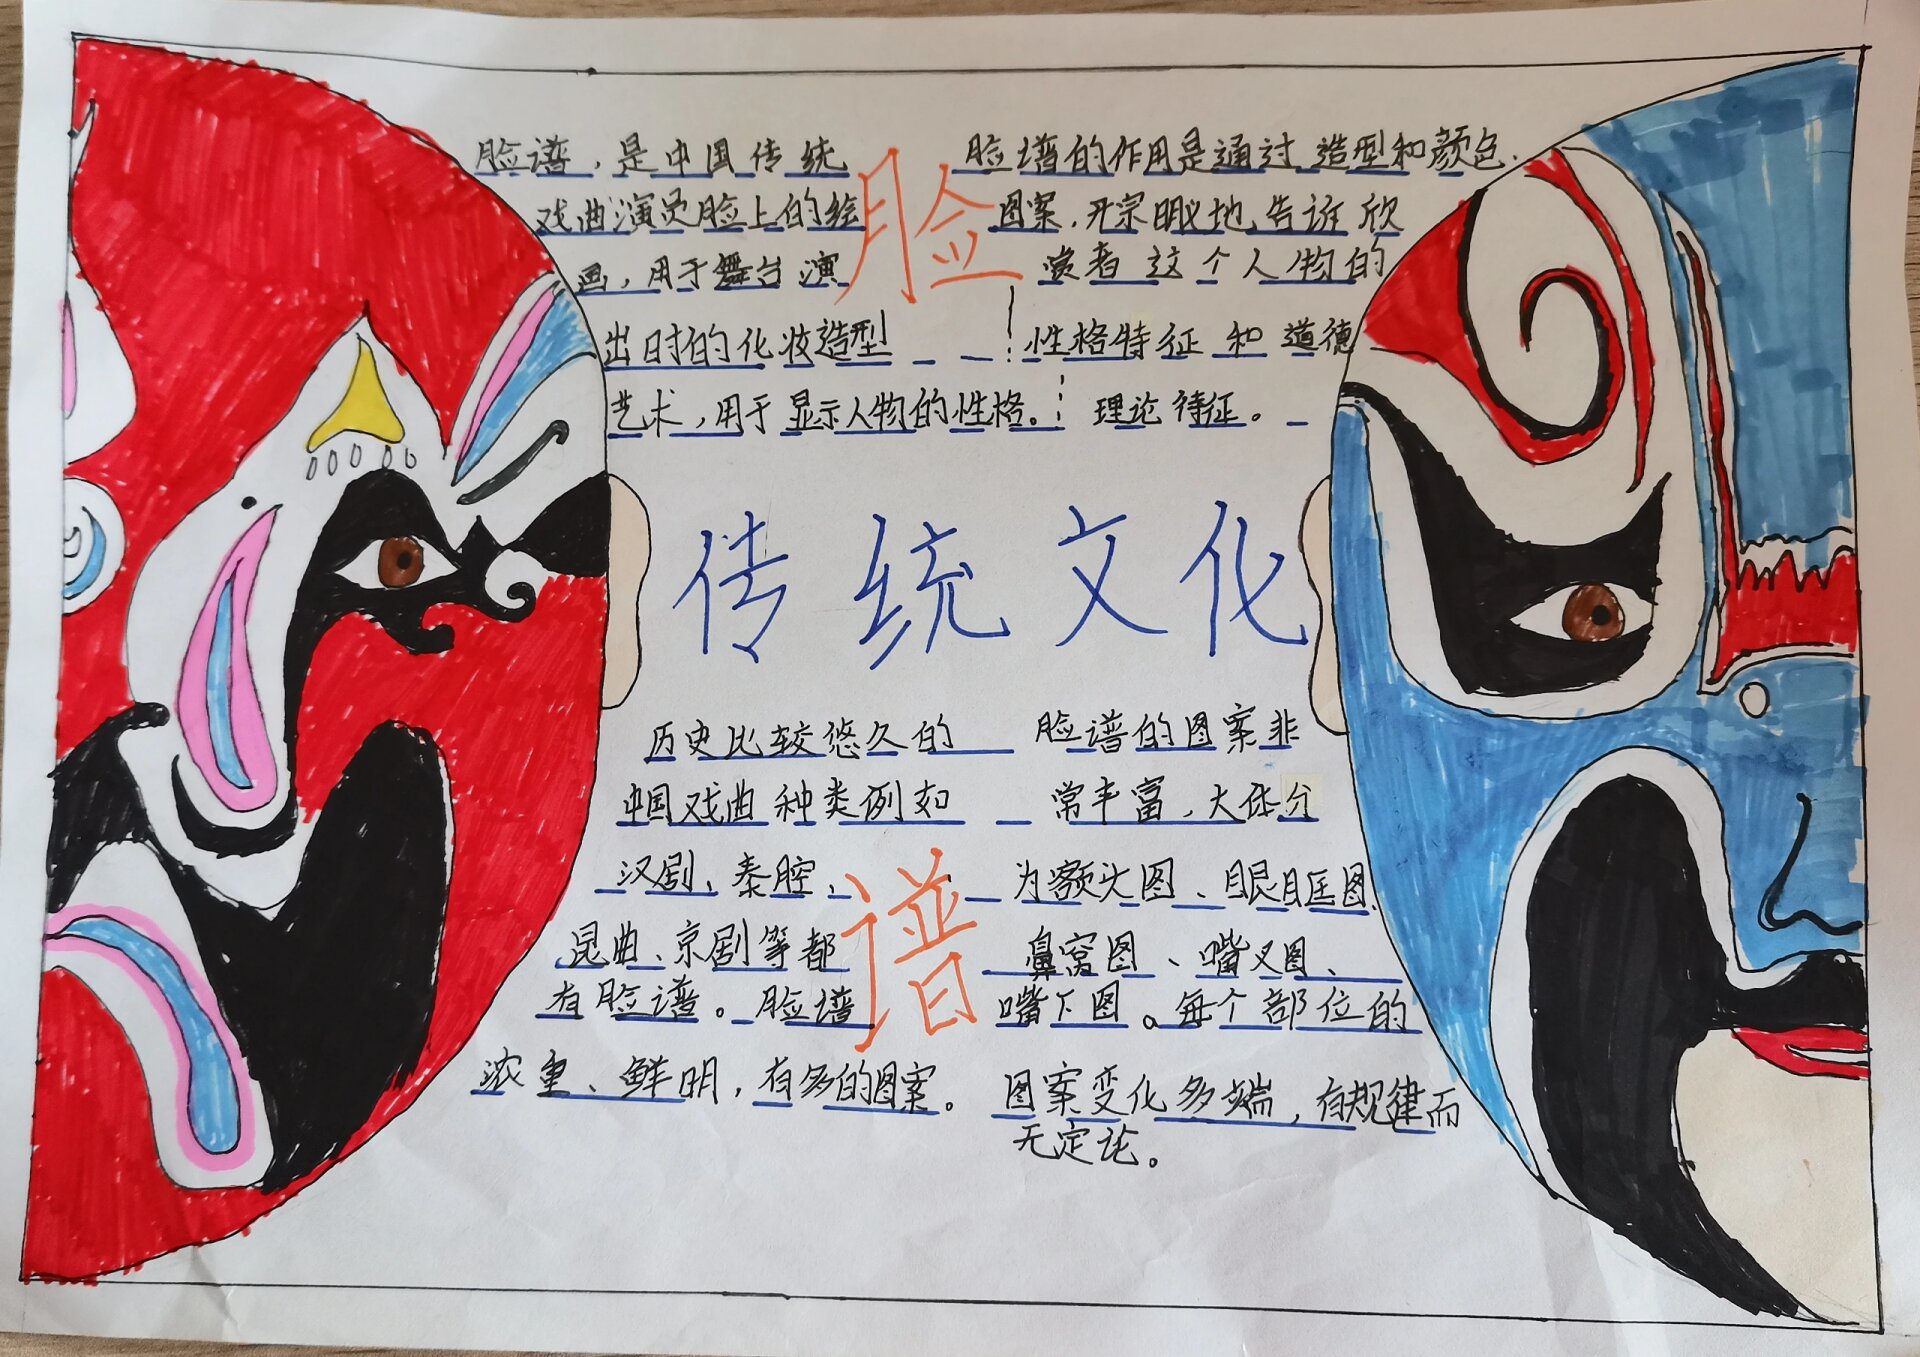 脸谱，是中国传统
戏曲演员脸上的绘
画，用于舞台演
出时的化妆造型
艺术，用于显示人物的性格。
脸谱的作用是通过造型和颜色.
图案，开宗明义地告诉欣
赏者这个人物的
性格特征和道德
理论特征。
脸
传统文化
谱
历史比较悠久的
中国戏曲种类例如
汉剧、秦腔、
昆曲、京剧等都
有脸谱。脸谱
浓重、鲜明，有多的图案。
脸谱的图案非
常丰富，大体分
为额头图、眼眶图、
鼻窝图、嘴叉图、
嘴下图。每个部位的
图案变化多端，有规律而
无定论。